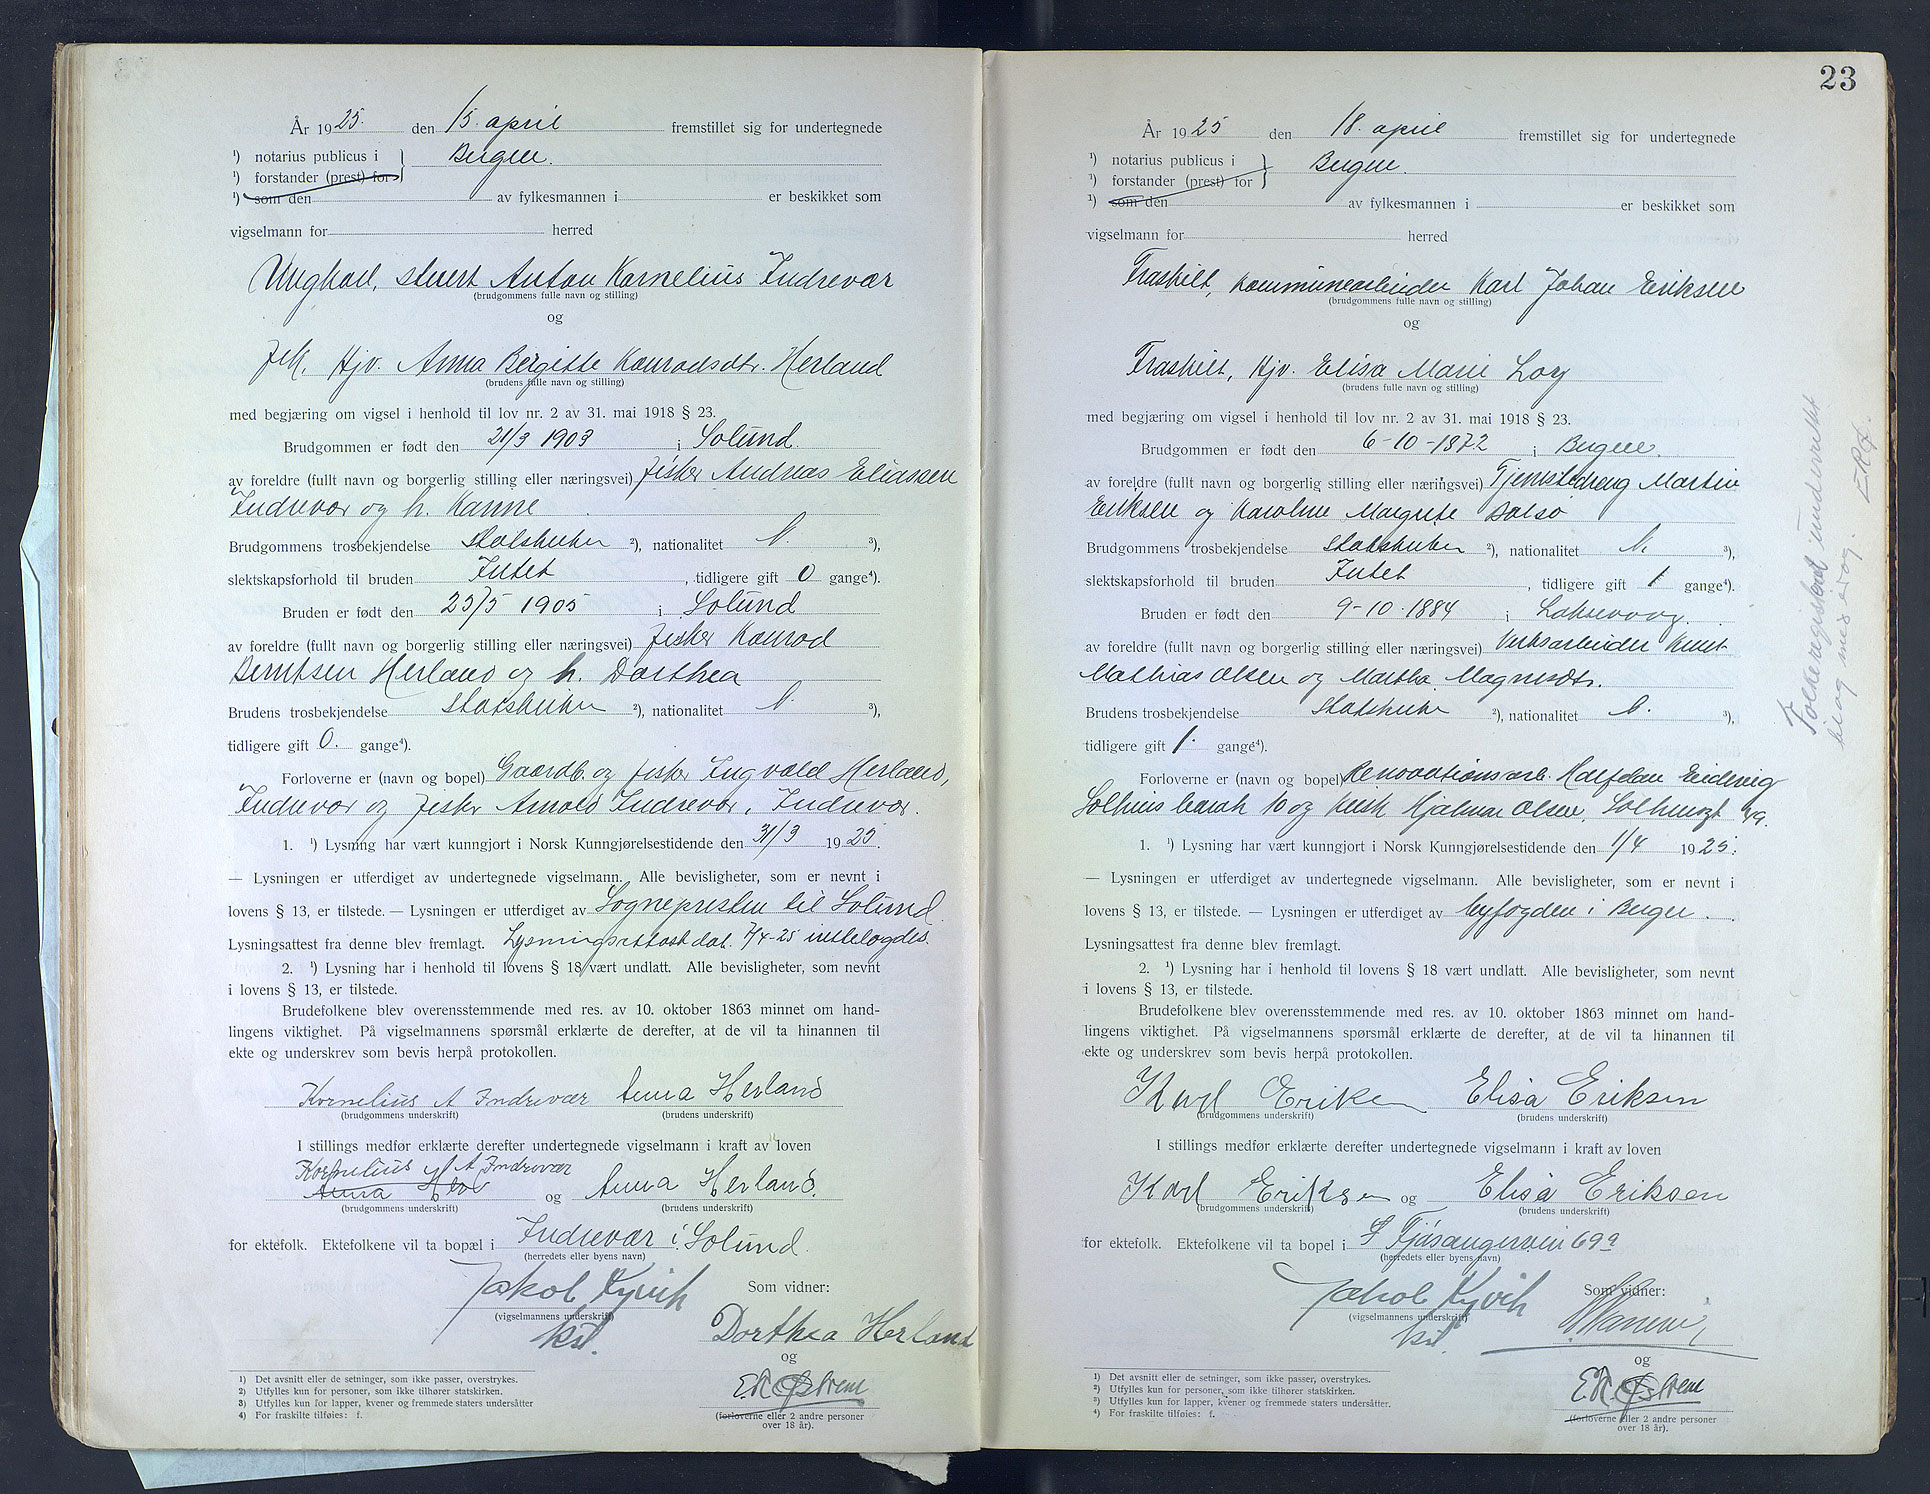 År 1925. den 15. april fremstillet sig for undertegnede
¹) notarius publicus i Bergen.
¹) forstander (prest) for
¹) som den av fylkesmannen i er beskikket som
vigselmann for herred
Ungkarl, stuert Anton Kornelius Indrevær
(brudgommens fulle navn og stilling)
og
Pik. Hjv. Anna Bergitte Konradsdtr. Herland
(brudens fulle navn og stilling)
med begjæring om vigsel i henhold til lov nr. 2 av 31. mai 1918 § 23.
Brudgommen er født den 21/3 1903 i Solund.
av foreldre (fullt navn og borgerlig stilling eller næringsvei) fisker Andreas Eliassen
Indrevær og h. Hanne
Brudgommens trosbekjendelse Statskirken ²), nationalitet N. ³),
slektskapsforhold til bruden Intet, tidligere gift 0 gange⁴).
Bruden er født den 25/5 1905 i Solund
av foreldre (fullt navn og borgerlig stilling eller næringsvei) fisker Konrad
Berntsen Herland og h. Dorthea
Brudens trosbekjendelse Statskirken ²), nationalitet N. ³),
tidligere gift 0. gange⁴).
Forloverne er (navn og bopel) Gaardb. og fisker Ingvald Herland,
Indrevær og fisker Arnold Indrevær, Indrevær.
1. ¹) Lysning har vært kunngjort i Norsk Kunngjørelsestidende den 31/3 1925.
— Lysningen er utferdiget av undertegnede vigselmann. Alle bevisligheter, som er nevnt i
lovens § 13, er tilstede. — Lysningen er utferdiget av Sognepresten til Solund.
Lysningsattest fra denne blev fremlagt. Lysningsattest dat. 7/4-25 vedlagdes.
2. ¹) Lysning har i henhold til lovens § 18 vært undlatt. Alle bevisligheter, som nevnt
i lovens § 13, er tilstede.
Brudefolkene blev overensstemmende med res. av 10. oktober 1863 minnet om hand-
lingens viktighet. På vigselmannens spørsmål erklærte de derefter, at de vil ta hinannen til
ekte og underskrev som bevis herpå protokollen.
Kornelius A Indrevær Anna Herland
(brudgommens underskrift) (brudens underskrift)
I stillings medfør erklærte derefter undertegnede vigselmann i kraft av loven
Kornelius A Indrevær
Anna Her og Anna Herland.
(brudgommens underskrift) (brudens underskrift)
for ektefolk. Ektefolkene vil ta bopæl i Indrevær i Solund.
(herredets eller byens navn)
Jakob Kyvik Som vidner:
(vigselmannens underskrift)
kst. Dorthea Herland
og
E.R. Østrem
(forloverne eller 2 andre personer
over 18 år).
1) Det avsnitt eller de setninger, som ikke passer, overstrykes.
2) Utfylles kun for personer, som ikke tilhører statskirken.
3) Utfylles kun for lapper, kvener og fremmede staters undersåtter
4) For fraskilte tilføies: f.
23
År 1925 den 18. april fremstillet sig for undertegnede
¹) notarius publicus i Bergen.
¹) forstander (prest) for
¹) som den av fylkesmannen i er beskikket som
vigselmann for herred
Fraskilt, kommunearbeider Karl Johan Eriksen
(brudgommens fulle navn og stilling)
og
Fraskilt, Hjv. Elisa Marie Loy
(brudens fulle navn og stilling)
med begjæring om vigsel i henhold til lov nr. 2 av 31. mai 1918 § 23.
Brudgommen er født den 6-10-1872 i Bergen.
av foreldre (fullt navn og borgerlig stilling eller næringsvei) Tjenestedreng Martin
Eriksen og Karoline Margrete Dalsø
Brudgommens trosbekjendelse Statskirken ²), nationalitet N. ³),
slektskapsforhold til bruden Intet, tidligere gift 1 gange⁴).
Bruden er født den 9-10-1884 i Laksevaag.
av foreldre (fullt navn og borgerlig stilling eller næringsvei) Verksarbeider Knut
Mathias Olsen og Martha Magnesdtr.
Brudens trosbekjendelse Statskirken ²), nationalitet N. ³),
tidligere gift 1. gange⁴).
Forloverne er (navn og bopel) Renovationsarb. Halfdan Eidevig
Solheims barak 10 og Hjalmar Olsen, Solheimsgt
1. ¹) Lysning har vært kunngjort i Norsk Kunngjørelsestidende den 1/4 1925.
— Lysningen er utferdiget av undertegnede vigselmann. Alle bevisligheter, som er nevnt i
lovens § 13, er tilstede. — Lysningen er utferdiget av byfogden i Bergen.
Lysningsattest fra denne blev fremlagt.
2. ¹) Lysning har i henhold til lovens § 18 vært undlatt. Alle bevisligheter, som nevnt
i lovens § 13, er tilstede.
Brudefolkene blev overensstemmende med res. av 10. oktober 1863 minnet om hand-
lingens viktighet. På vigselmannens spørsmål erklærte de derefter, at de vil ta hinannen til
ekte og underskrev som bevis herpå protokollen.
Karl Eriksen Elisa Eriksen
(brudgommens underskrift) (brudens underskrift)
I stillings medfør erklærte derefter undertegnede vigselmann i kraft av loven
Karl Eriksen og Elisa Eriksen
(brudgommens underskrift) (brudens underskrift)
for ektefolk. Ektefolkene vil ta bopel i Fjøsangerveien 69a
(herredets eller byens navn)
Jakob Kyvik Som vidner:
(vigselmannens underskrift)
kst.
og
E.R. Østrem
(forloverne eller 2 andre personer
over 18 år).
¹) Det avsnitt eller de setninger, som ikke passer, overstrykes.
²) Utfylles kun for personer, som ikke tilhører statskirken.
³) Utfylles kun for lapper, kvener og fremmede staters undersåtter.
⁴) For fraskilte tilføies: f.
Folkeregisteret underrettet